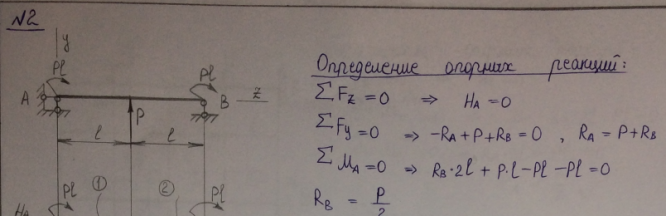 №2
y
Pl
Pl
A
B
z
P
l
l
①
②
Pl
Pl
H_A
Определение опорных реакций:
∑F_z = 0 ⇒ H_A = 0
∑F_y = 0 ⇒ -R_A + P + R_B = 0 , R_A = P + R_B
∑M_A = 0 ⇒ R_B · 2l + P · l - Pl - Pl = 0
R_B = P/2